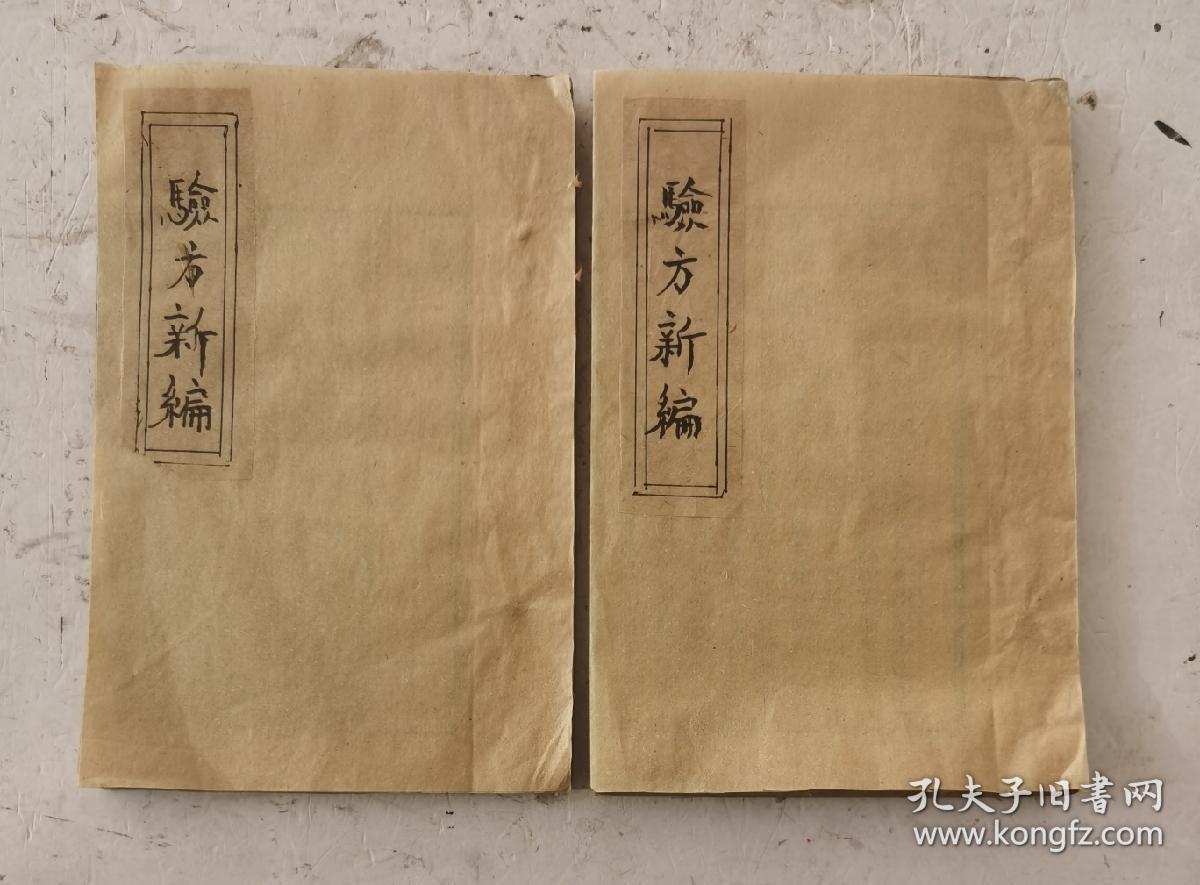 驗方新編
驗方新編
孔夫子旧書网
www.kongfz.com